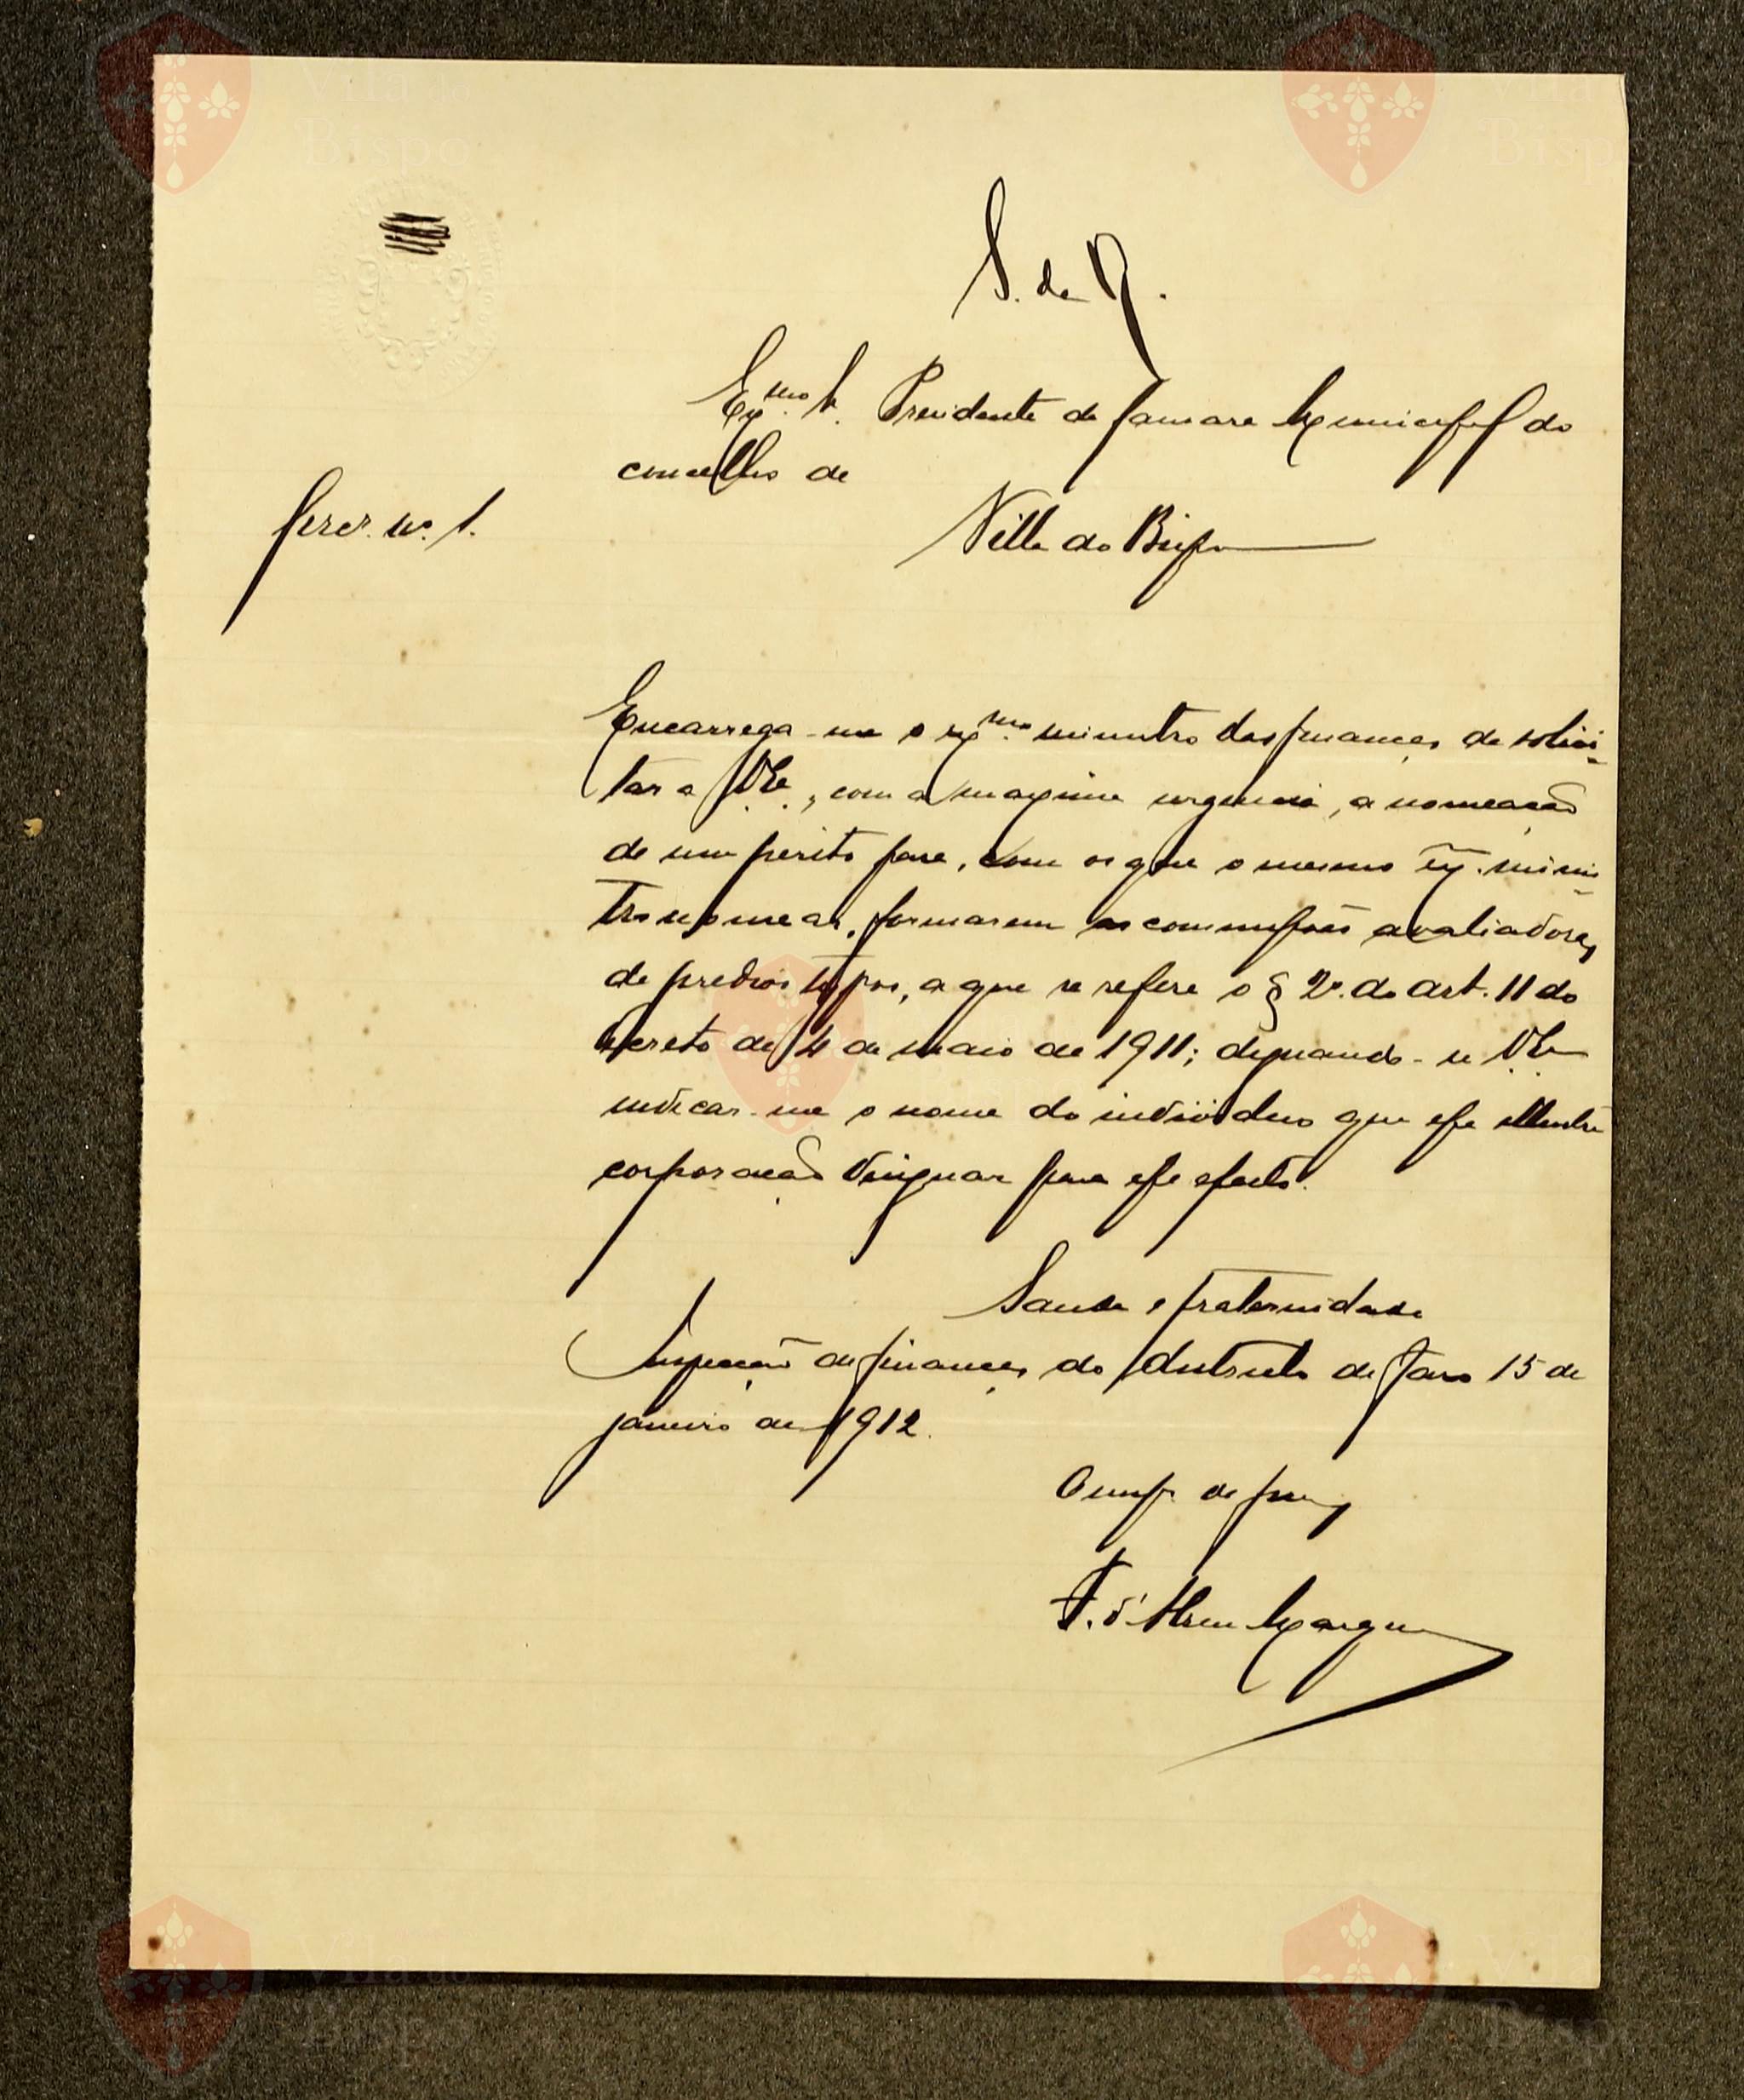 S. da R.
Exmo. Sr. Presidente da Camara Municipal do
concelho de
Villa do Bispo
Circr. no. 1.
Encarrega-me o exmo. ministro das finanças de solici-
tar a V.Exa., com a maxima urgencia, a nomeação
de um perito para, com os que o mesmo ex. minis-
tro nomear, formarem as commissões avaliadoras
de predios, a que se refere o § 2º. do art. 11 do
decreto de 4 de maio de 1911; dignando-se V.Exa
indicar-me o nome do individuo que essa illustre
corporação designar para esse efeito.
Saude e fraternidade
Inspecção de finanças do districto de Faro 15 de
janeiro de 1912.
O insp. de finanças
F. d'Abreu Marques
Vila do
Bispo